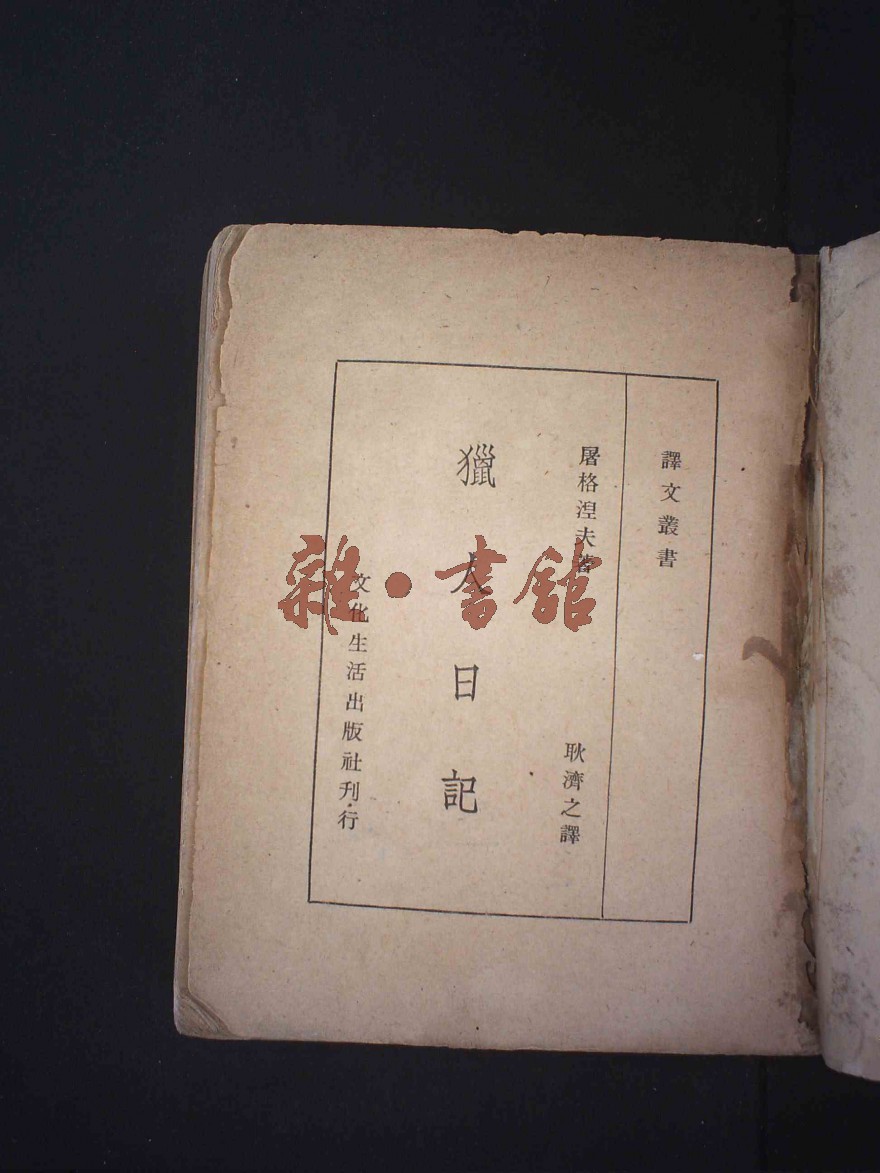 譯文叢書
屠格湼夫著
耿濟之譯
獵人日記
文化生活出版社刊·行
雜·書館